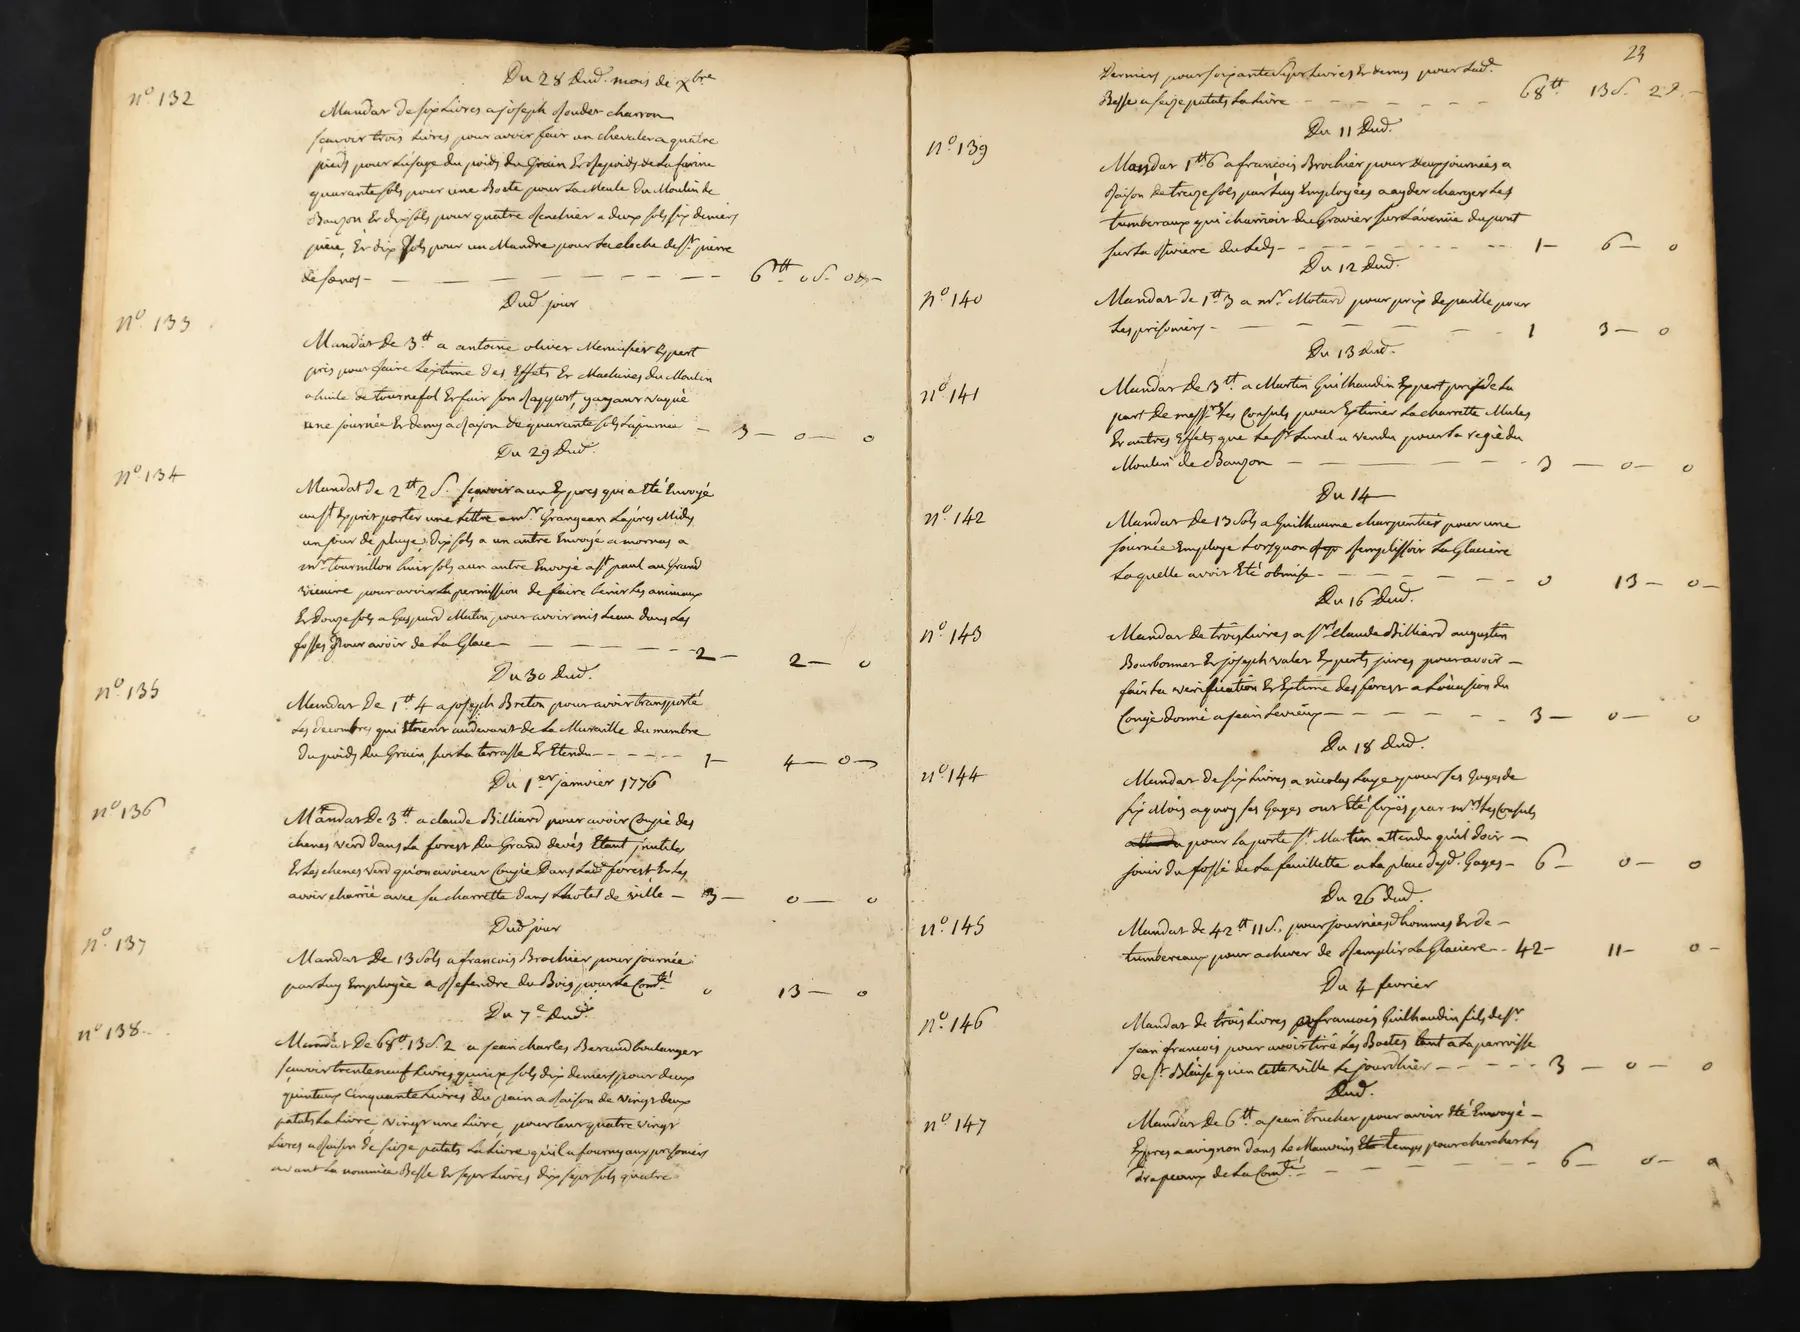 Du 28 Dud. mois de Xbre
n.º 132
Mandat de six Livres a joseph Rouder charron
scavoir trois Livres pour avoir fait un chevalet a quatre
pieds pour L'usage du poids du Grain Et Repoids de La farine
quarante sols pour une Boete pour La Meule du Moulin de
Bauzon Et dix sols pour quatre Renchier a deux sols six deniers
piece, Et dix sols pour un Mandre pour La cloche de st. pierre
de senos - 6tt 0 s. 0 d -
Dud. jour
n.º 133
Mandat De 3tt a antoine olivier Menuisier Expert
pris pour faire L'extime des Effets Et Machines du Moulin
a huile de tournefol Et fair son Rapport, y ayant vaqué
une journée Et demy a Raison de quarante sols La journée - 3 - 0 - 0
Du 29 Dud.
n.º 134
Mandat de 2tt 2 s. scavoir a un Expres qui a Eté Envoyé
au st Esprit porter une Lettre a mr. Grangean L'apres Midy
un jour de pluye, dix sols a un autre Envoyé a mornas a
mr. tournillon huit sols a un autre Envoyé a st paul au Grand
vicaire pour avoir La permission de faire tenir Les animaux
Et Douze sols a Gaspard Muton pour avoir mis L'eau dans Les
fosses Pour avoir de La Glace - 2 - 2 - 0
Du 30 Dud.
n.º 135
Mandat de 1tt 4 a joseph Breton pour avoir transporté
Les decombres qui Etoient audevant de La Muraille du membre
du poids du Grain, sur La terrasse Et Etendu - 1 - 4 - 0
Du 1er janvier 1776
n.º 136
Mandat De 3tt a claude Billiard pour avoir Coupé des
chenes verd dans La forest du Grand devés Etant jnutiles
Et Les chenes verd qu'on avoient Coupé Dans Lad. forest Et Les
avoir charrié avec sa charrette dans L'hotel de ville - 3 - 0 - 0
Dud jour
n.º 137
Mandat De 13 sols a francois Brochier pour journée
par Luy Employée a Refendre du Bois pour La Comté. 0 13 - 0
Du 7e Dud.
n.º 138
Mandat De 68tt 13 s. 2 a jean charles Berand boulanger
scavoir trente neuf Livres quinze sols dix deniers pour deux
quintaux Cinquante Livres du pain a Raison de vingt deux
patats La Livre, vingt une Livre pour Cent quatre vingt
Livres a Raison de seize patats La Livre qu'il a fourny aux prisoniers
avant La nommée Besse Et sept Livres dix sept sols quatre
23
Derniers pour soixante sept Livres Et demy pour Lad.
Besse a seize patats La Livre - 68tt 13 s. 2 d. -
Du 11 Dud.
n.º 139
Mandat 1tt 6 a francois Brochier pour deux journées a
Raison de treize sols par Luy Employées a ayder charger Les
tumberaux qui charrioit du Gravier sur L'avenüe du pont
sur La Riviere du Leds - 1 - 6 - 0
Du 12 Dud.
n.º 140
Mandat de 1tt 3 a mr. Motard pour prix de paille pour
Les prisoniers - 1 3 - 0
Du 13 Dud.
n.º 141
Mandat De 3tt a Martin Guilhaudin Expert pris de La
part De messrs. Les Consuls pour Extimer La charrette Mules
Et autres Effets que Le sr. Lunel a vendu pour La regie du
Moulin de Bauzon - 3 - 0 - 0
Du 14
n.º 142
Mandat De 13 sols a Guilhaume charpentier pour une
journée Employe Lorsquon Remplissoit La Glaciere
Laquelle avoit Eté obmise - 0 13 - 0 -
Du 16 Dud.
n.º 143
Mandat De trois Livres a sr. claude Billiard augustin
Bourbonnet Et joseph valet Experts jures pour avoir -
fait La verification Et Extime des forest a L'occasion du
Congé donné a jean Levieux - 3 - 0 - 0
Du 18 Dud.
n.º 144
Mandat de six Livres a nicolas Laye pour ses Gages de
six Mois a quoy ses Gages ont Eté fixés par mrs. Les Consuls
pour La porte st. Martin attendu qu'il doit -
jouir du fossé de La feuillette a La place desd. Gages - 6 - 0 - 0
Du 26 Dud.
n.º 145
Mandat de 42tt 11 s. pour journées d'hommes Et de -
tumbereaux pour achever de Remplir La Glaciere - 42 - 11 - 0 -
Du 4 fevrier
n.º 146
Mandat de trois Livres francois Guilhaudin fils de sr.
jean francois pour avoir tiré Les Boetes tant a La parroisse
de st. Bleise qu'en Cette ville Le jour d'hier - 3 - 0 - 0
Dud.
n.º 147
Mandat de 6tt a jean trucher pour avoir Eté Envoyé -
Expres a avignon dans Le Mauvais temps pour chercher Les
drapeaux de La Comté. - 6 - 0 - 0